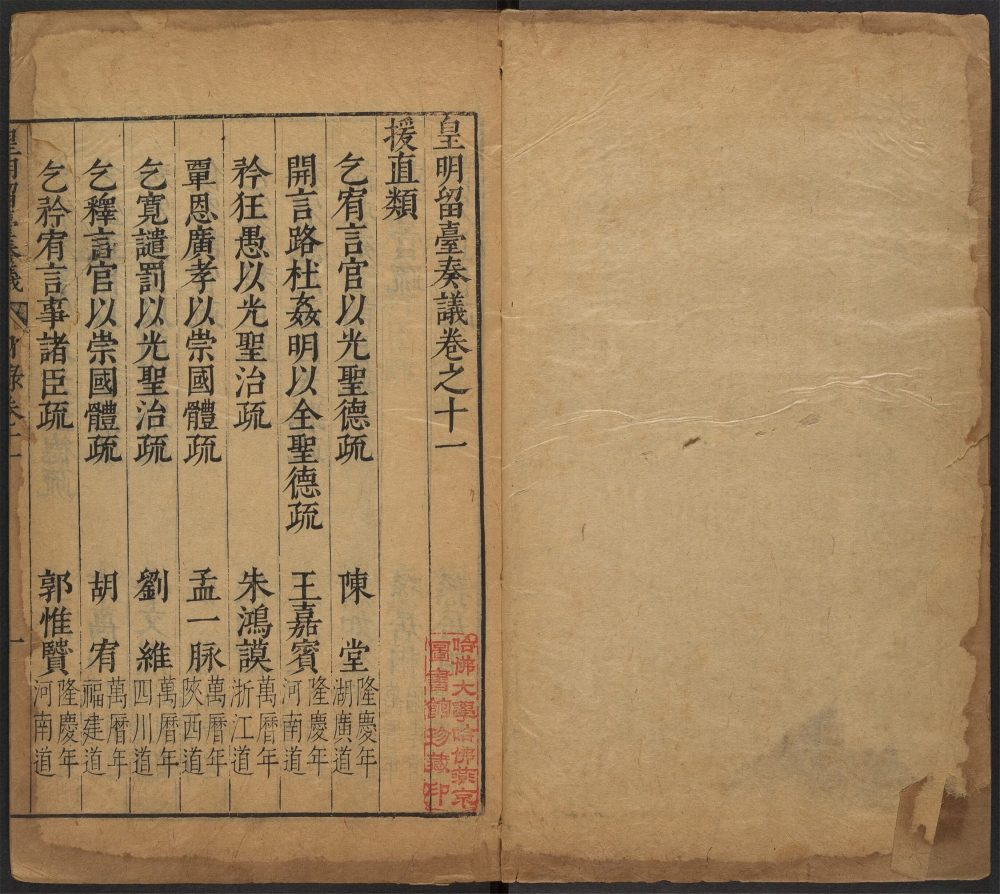 皇明留臺奏議卷之十一
援直類
乞宥言官以光聖德疏 陳堂 隆慶年湖廣道
開言路杜姦明以全聖德疏 王嘉賓 隆慶年河南道
矜狂愚以光聖治疏 朱鴻謨 萬曆年浙江道
覃恩廣孝以崇國體疏 孟一脉 萬曆年陝西道
乞寬譴罰以光聖治疏 劉維 萬曆年四川道
乞釋言官以崇國體疏 胡宥 萬曆年福建道
乞矜宥言事諸臣疏 郭惟賢 隆慶年河南道
哈佛大學哈佛燕京
圖書館珍藏印